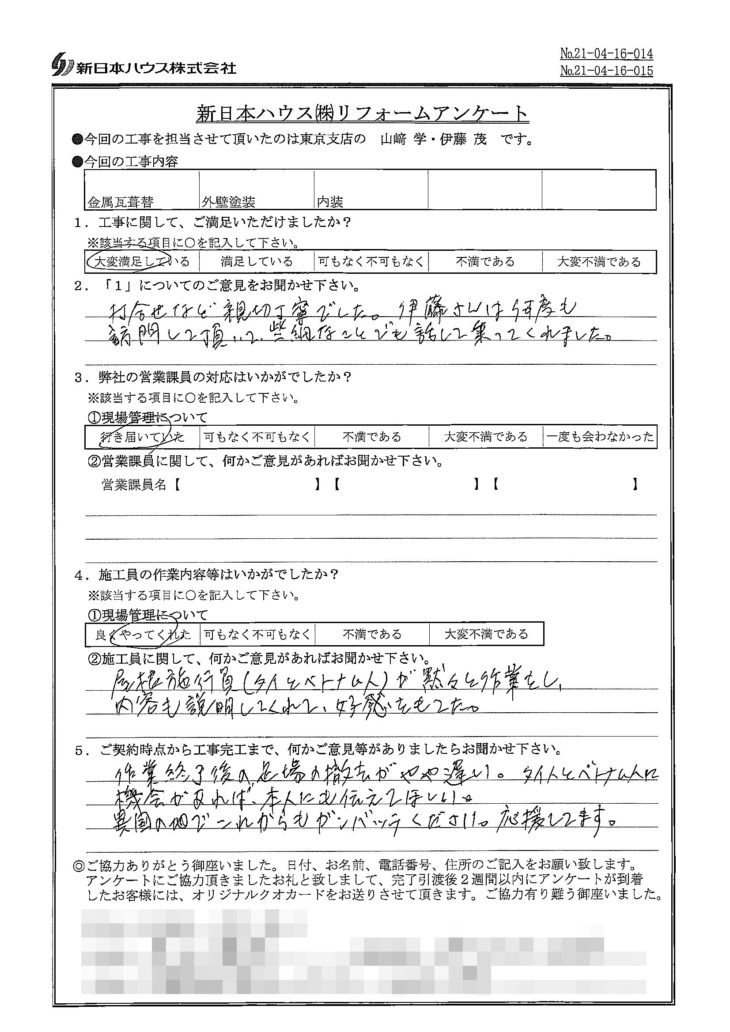 新日本ハウス株式会社
No.21-04-16-014
No.21-04-16-015
新日本ハウス㈱リフォームアンケート
●今回の工事を担当させて頂いたのは東京支店の 山﨑 学・伊藤 茂 です。
●今回の工事内容
金属瓦葺替 外壁塗装 内装
1．工事に関して、ご満足いただけましたか？
※該当する項目に○を記入して下さい。
大変満足している 満足している 可もなく不可もなく 不満である 大変不満である
2．「1」についてのご意見をお聞かせ下さい。
打合せなど親切丁寧でした。伊藤さんは何度も
訪問して頂いて、些細なことでも話して乗ってくれました。
3．弊社の営業課員の対応はいかがでしたか？
※該当する項目に○を記入して下さい。
①現場管理について
行き届いていた 可もなく不可もなく 不満である 大変不満である 一度も会わなかった
②営業課員に関して、何かご意見があればお聞かせ下さい。
営業課員名【 】【 】【 】
4．施工員の作業内容等はいかがでしたか？
※該当する項目に○を記入して下さい。
①現場管理について
良くやってくれた 可もなく不可もなく 不満である 大変不満である
②施工員に関して、何かご意見があればお聞かせ下さい。
屋根施行員(タイとベトナム人)が黙々と作業をし、
内容も説明してくれて、好感をもてた。
5．ご契約時点から工事完工まで、何かご意見等がありましたらお聞かせ下さい。
作業終了後の足場の撤去がやや遅い。タイ人とベトナム人に
機会があれば、本人にも伝えてほしい。
異国の地でこれからもガンバッテください。応援してます。
◎ご協力ありがとう御座いました。日付、お名前、電話番号、住所のご記入をお願い致します。
アンケートにご協力頂きましたお礼と致しまして、完了引渡後2週間以内にアンケートが到着
したお客様には、オリジナルクオカードをお送りさせて頂きます。ご協力有り難う御座いました。